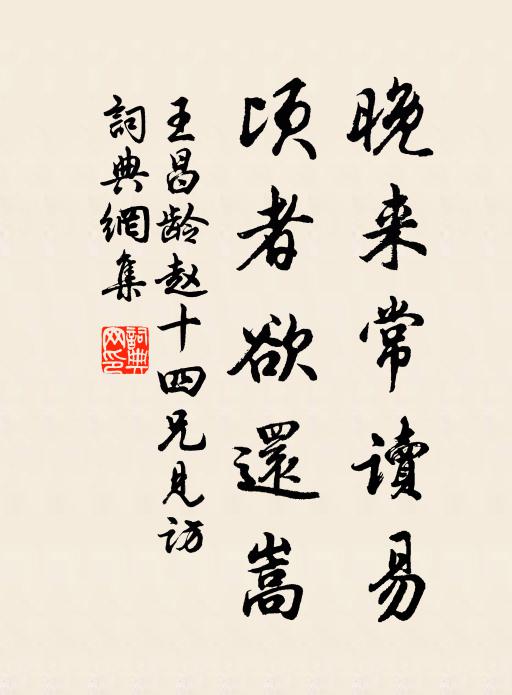 晚来常讀易
頃者欲還嵩
王昌龄赵十四兄見访
詞典網集
詞典網印